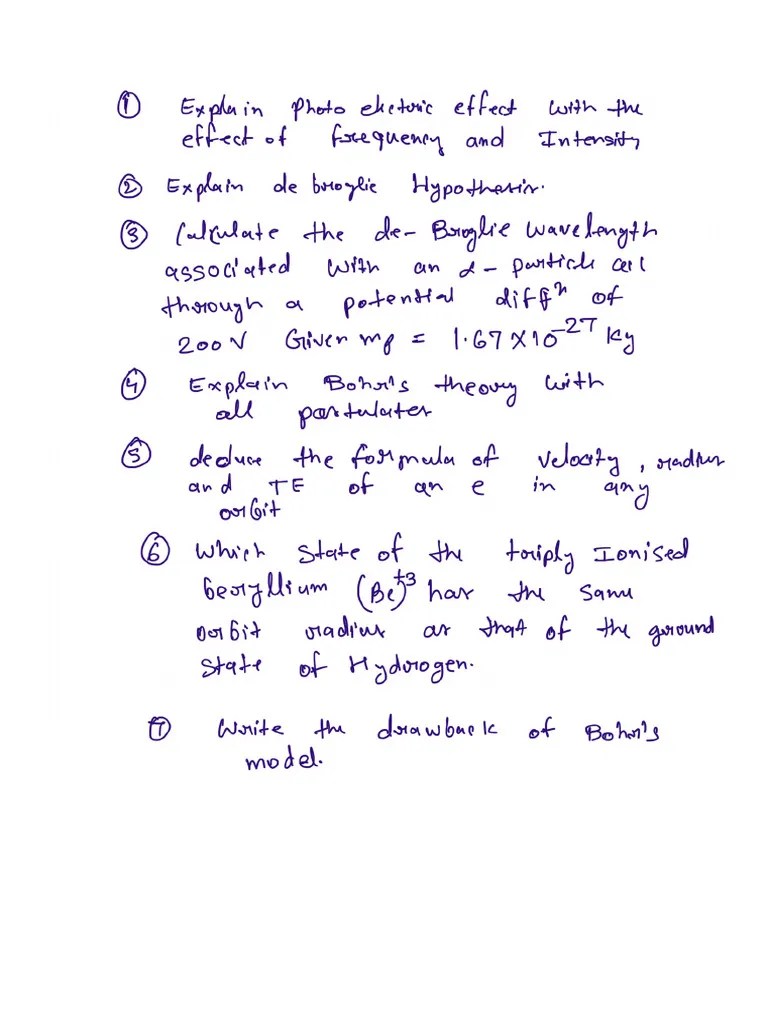 ① Explain Photo elctoric effect with the
effect of frequency and Intensity
② Explain de broglie Hypothesis.
③ Calculate the de-Broglie wavelength
associated with an α-particle acl
through a potential diffⁿ of
200V Given mp = 1.67X10⁻²⁷ Kg
④ Explain Bohr's theory with
all postulates
⑤ deduce the formula of velocity, radius
and TE of an e in any
orbit
⑥ Which State of the triply Ionised
beryllium (Be)⁺³ has the same
orbit radius as that of the ground
State of Hydrogen.
⑦ Write the drawback of Bohr's
model.